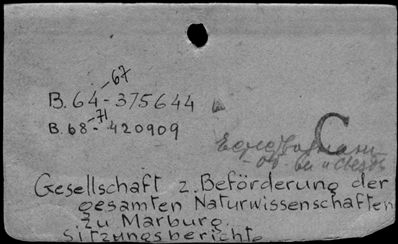 -67
B.64-375644
-71
B.68-420909
C
Gesellschaft z. Beförderung der
gesamten Naturwissenschaften
zu Marburg.
Sitzungsberichte